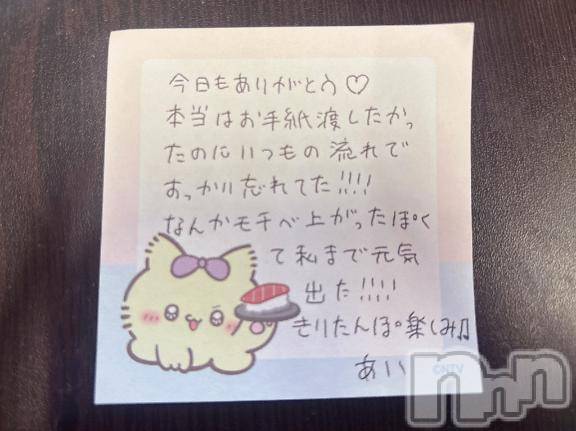 今日もありがとう♡
本当はお手紙渡したかっ
たのにいつもの流れで
おっかり忘れてた!!!!
なんかモチベ上がったぽく
て私まで元気
出た!!!!
きりたんぽ楽しみ♫
あい
©NTV
nnn